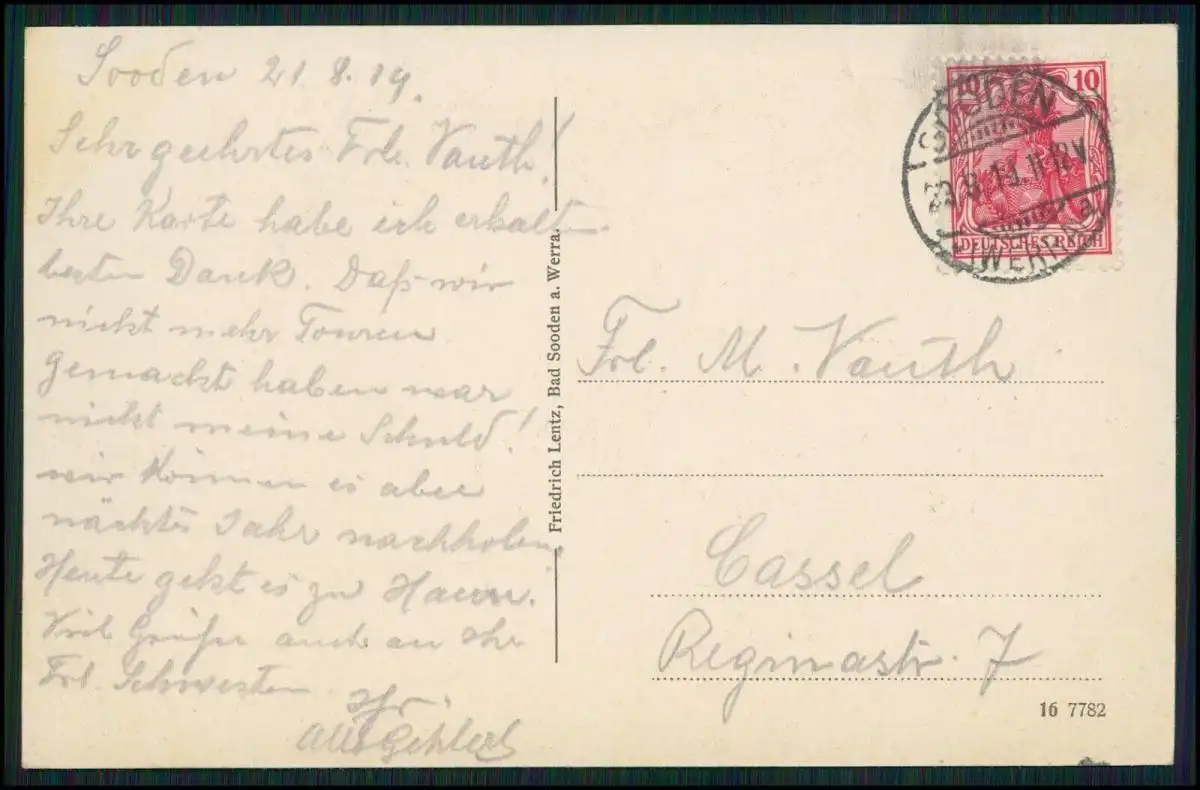 Sooden 21.8.19.
Sehr geehrtes Frl. Vauth!
Ihre Karte habe ich erhalten
besten Dank. Daß wir
nicht mehr Touren
gemacht haben war
nicht meine Schuld!
wir können es aber
nächstes Jahr nachholen.
Heute geht es zu Hause.
Viel Grüße auch an Ihr
Frl. Schwester
Ihr
Gehlert
Friedrich Lentz, Bad Sooden a. Werra.
10 10
DEUTSCHES REICH
SOODEN
8.19.11-12V
(WERRA) a
Frl. M. Vauth
Cassel
Reginastr. 7
16 7782